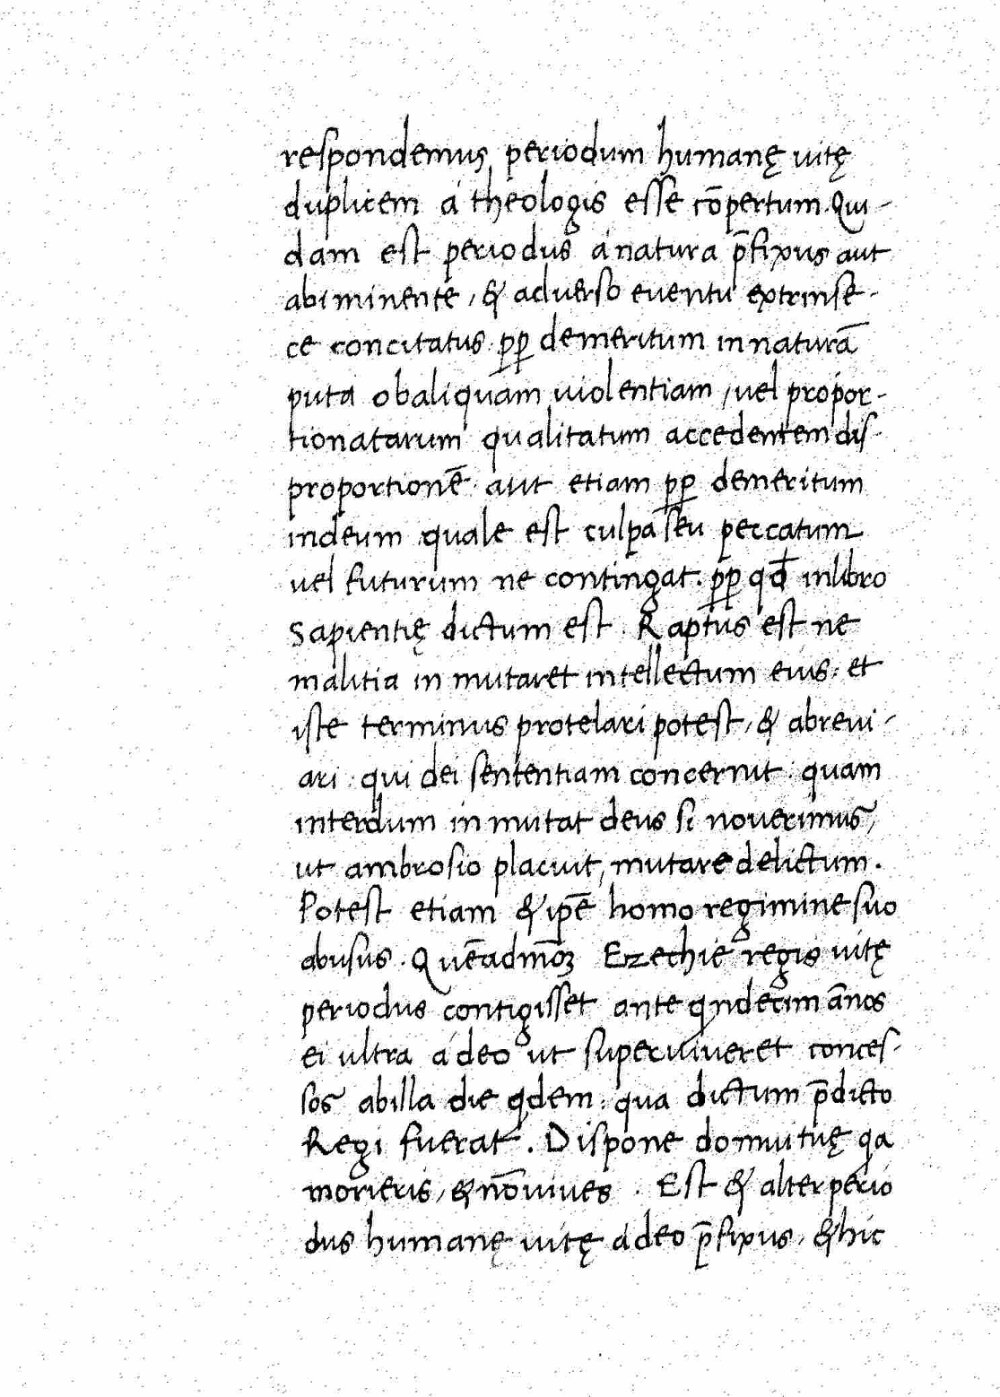 respondemus periodum humanę uitę
duplicem á theologis esse cōpertum. Qui-
dam est periodus á natura p̄fixus aut
ab iminente, & aduerso euentu extrinse-
ce concitatus pp̄ demeritum in naturā
puta ob aliquam uiolentiam, uel propor-
tionatarum qualitatum accedentem dis-
proportionē aut etiam pp̄ demeritum
in deum quale est culpa seu peccatum
uel futurum ne contingat. pp̄ qđ in libro
Sapientię dictum est. Raptus est ne
malitia in mutaret intellectum eius. et
iste terminus protelari potest, & abreui-
ari: qui dei sententiam concernit: quam
interdum in mutat deus si nouerimus,
ut ambrosio placuit, mutare delictum.
Potest etiam & ip̄e homo regimine suo
abusus. Quēadmōꝫ Ezechie regis uitę
periodus contigisset ante qndecim ānos
ei ultra á deo ut superuiueret conces-
sos ab illa die qdem: qua dictum p̄dicto
Regi fuerat. Dispone domui tuę qa
morieris, & nō uiues. Est & alter perio
dus humanę uitę á deo p̄fixus, & hic